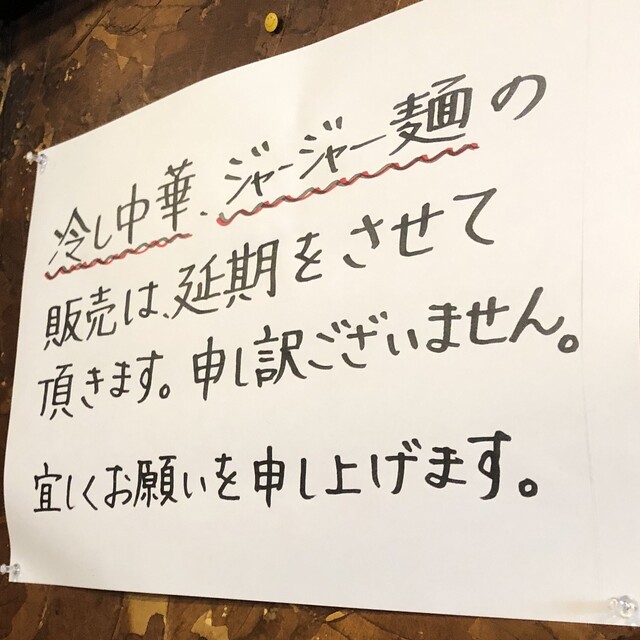 冷し中華、ジャージャー麺の
販売は、延期をさせて
頂きます。申し訳ございません。
宜しくお願いを申し上げます。